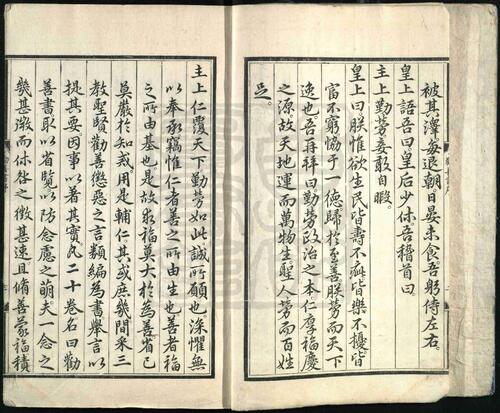 被其澤每退朝日晏未食吾躬侍左右。
皇上語吾曰皇后少休吾稽首曰
主上勤勞妾敢自暇。
皇上曰朕惟欲生民皆壽不疵皆樂不擾皆
富不窮協于一德歸於至善朕勞而天下
逸也。吾再拜曰勤勞政治之本仁厚福慶
之源。故天地運而萬物生聖人勞而百姓
安。
主上仁覆天下勤勞如此誠所願也深懼無
以奉承竊惟仁者善之所由生也善者福
之所由基也是故求福莫大於為善省己
莫嚴於知戒。用是輔仁其或庶幾間采三
教聖賢勸善懲惡之言類編為書舉言以
提其要因事以著其實凡二十卷名曰勸
善書取以省覽以防念慮之萌夫一念之
幾甚微而休咎之徵甚速且脩善蒙福積